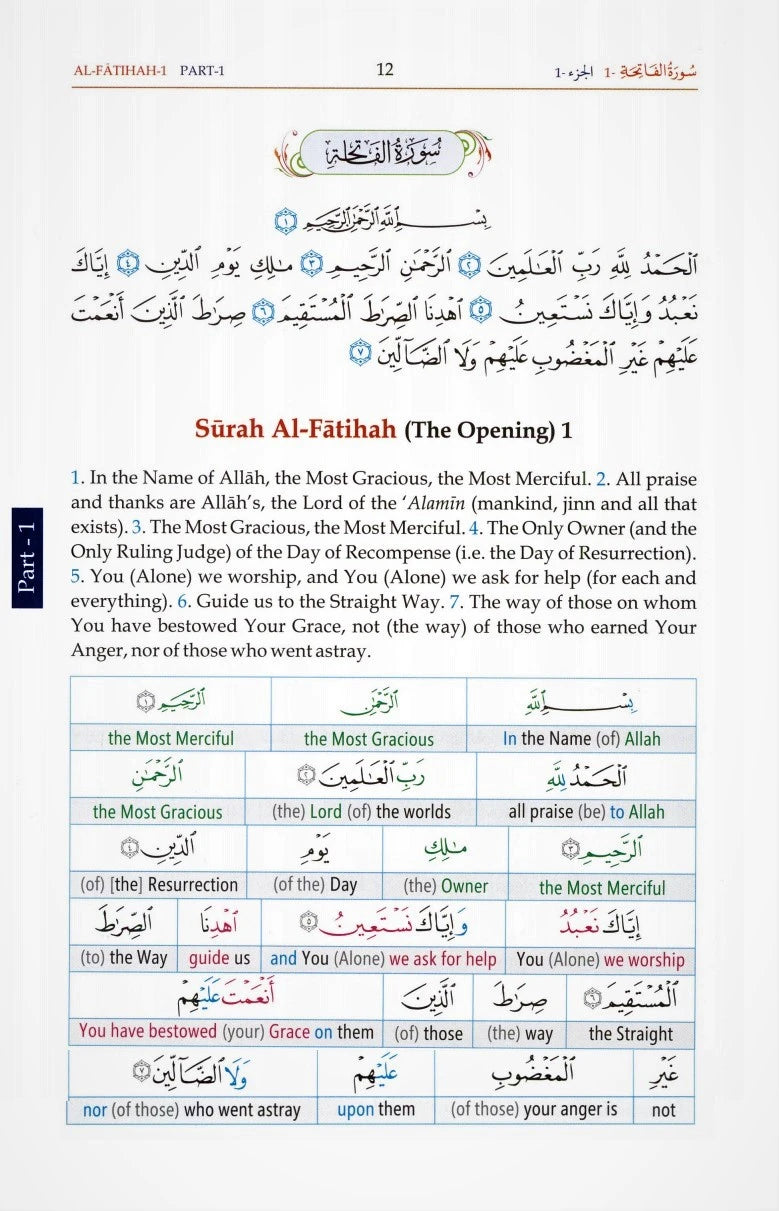 AL-FĀTIHAH-1 PART-1 12 الجزء -1 سُورَةُ الفَاتِحَةِ -1
سُورَةُ الفَاتِحَةِ
بِسْمِ ٱللَّهِ ٱلرَّحْمَٰنِ ٱلرَّحِيمِ ١
ٱلْحَمْدُ لِلَّهِ رَبِّ ٱلْعَٰلَمِينَ ٢ ٱلرَّحْمَٰنِ ٱلرَّحِيمِ ٣ مَٰلِكِ يَوْمِ ٱلدِّينِ ٤ إِيَّاكَ
نَعْبُدُ وَإِيَّاكَ نَسْتَعِينُ ٥ ٱهْدِنَا ٱلصِّرَٰطَ ٱلْمُسْتَقِيمَ ٦ صِرَٰطَ ٱلَّذِينَ أَنْعَمْتَ
عَلَيْهِمْ غَيْرِ ٱلْمَغْضُوبِ عَلَيْهِمْ وَلَا ٱلضَّآلِّينَ ٧
Sūrah Al-Fātihah (The Opening) 1
1. In the Name of Allāh, the Most Gracious, the Most Merciful. 2. All praise
and thanks are Allāh’s, the Lord of the ‘Alamīn (mankind, jinn and all that
exists). 3. The Most Gracious, the Most Merciful. 4. The Only Owner (and the
Only Ruling Judge) of the Day of Recompense (i.e. the Day of Resurrection).
Part - 1
5. You (Alone) we worship, and You (Alone) we ask for help (for each and
everything). 6. Guide us to the Straight Way. 7. The way of those on whom
You have bestowed Your Grace, not (the way) of those who earned Your
Anger, nor of those who went astray.
بِسْمِ ٱللَّهِ ٱلرَّحْمَٰنِ ٱلرَّحِيمِ ١
the Most Merciful the Most Gracious In the Name (of) Allah
ٱلْحَمْدُ لِلَّهِ رَبِّ ٱلْعَٰلَمِينَ ٢ ٱلرَّحْمَٰنِ
the Most Gracious (the) Lord (of) the worlds all praise (be) to Allah
ٱلرَّحِيمِ ٣ مَٰلِكِ يَوْمِ ٱلدِّينِ ٤
(of) [the] Resurrection (of the) Day (the) Owner the Most Merciful
إِيَّاكَ نَعْبُدُ وَإِيَّاكَ نَسْتَعِينُ ٥ ٱهْدِنَا ٱلصِّرَٰطَ
(to) the Way guide us and You (Alone) we ask for help You (Alone) we worship
ٱلْمُسْتَقِيمَ ٦ صِرَٰطَ ٱلَّذِينَ أَنْعَمْتَ عَلَيْهِمْ
You have bestowed (your) Grace on them (of) those (the) way the Straight
غَيْرِ ٱلْمَغْضُوبِ عَلَيْهِمْ وَلَا ٱلضَّآلِّينَ ٧
nor (of those) who went astray upon them (of those) your anger is not